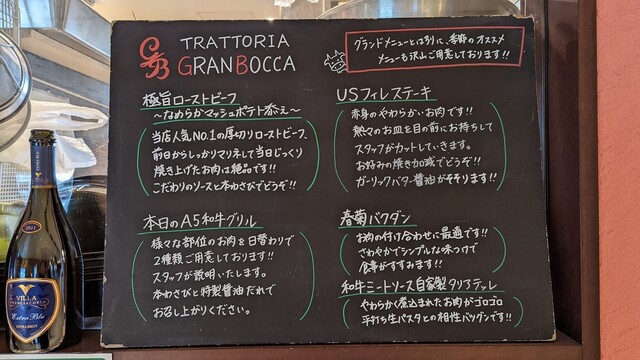 TRATTORIA
GRANBOCCA
グランドメニューとは別に、季節のオススメ
メニューも沢山ご用意しております!!
極旨ローストビーフ
〜なめらかマッシュポテト添え〜
当店人気NO.1の厚切りローストビーフ、
前日からしっかりマリネして当日じっくり
焼き上げたお肉は絶品です!!
こだわりのソースと本わさびでどうぞ!!
本日のA5和牛グリル
様々な部位のお肉を日替わりで
2種類ご用意しております。
スタッフが説明いたします。
本わさびと特製醤油だれで
お召し上がりください。
USフィレステーキ
赤身のやわらかいお肉です!!
熱々のお皿を目の前にお持ちして
スタッフがカットしていきます。
お好みの焼き加減でどうぞ!!
ガーリックバター醤油がそそります!!
春菊バクダン
お肉の付け合わせに最適です!!
さわやかでシンプルな味つけで
食事がすすみます!!
和牛ミートソース自家製タリアテッレ
やわらかく煮込まれたお肉がゴロゴロ
平打ち生パスタとの相性バツグンです!!
2011
VILLA
FRANCIACORTA
Extra Blu
EXTRA BRUT